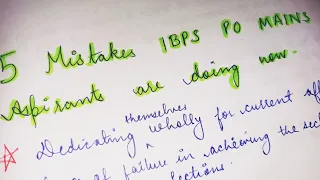 5 Mistakes IBPS PO MAINS
Aspirants are doing now.
themselves
Dedicating wholly for current aff
of failure in achieving the sec
lections.